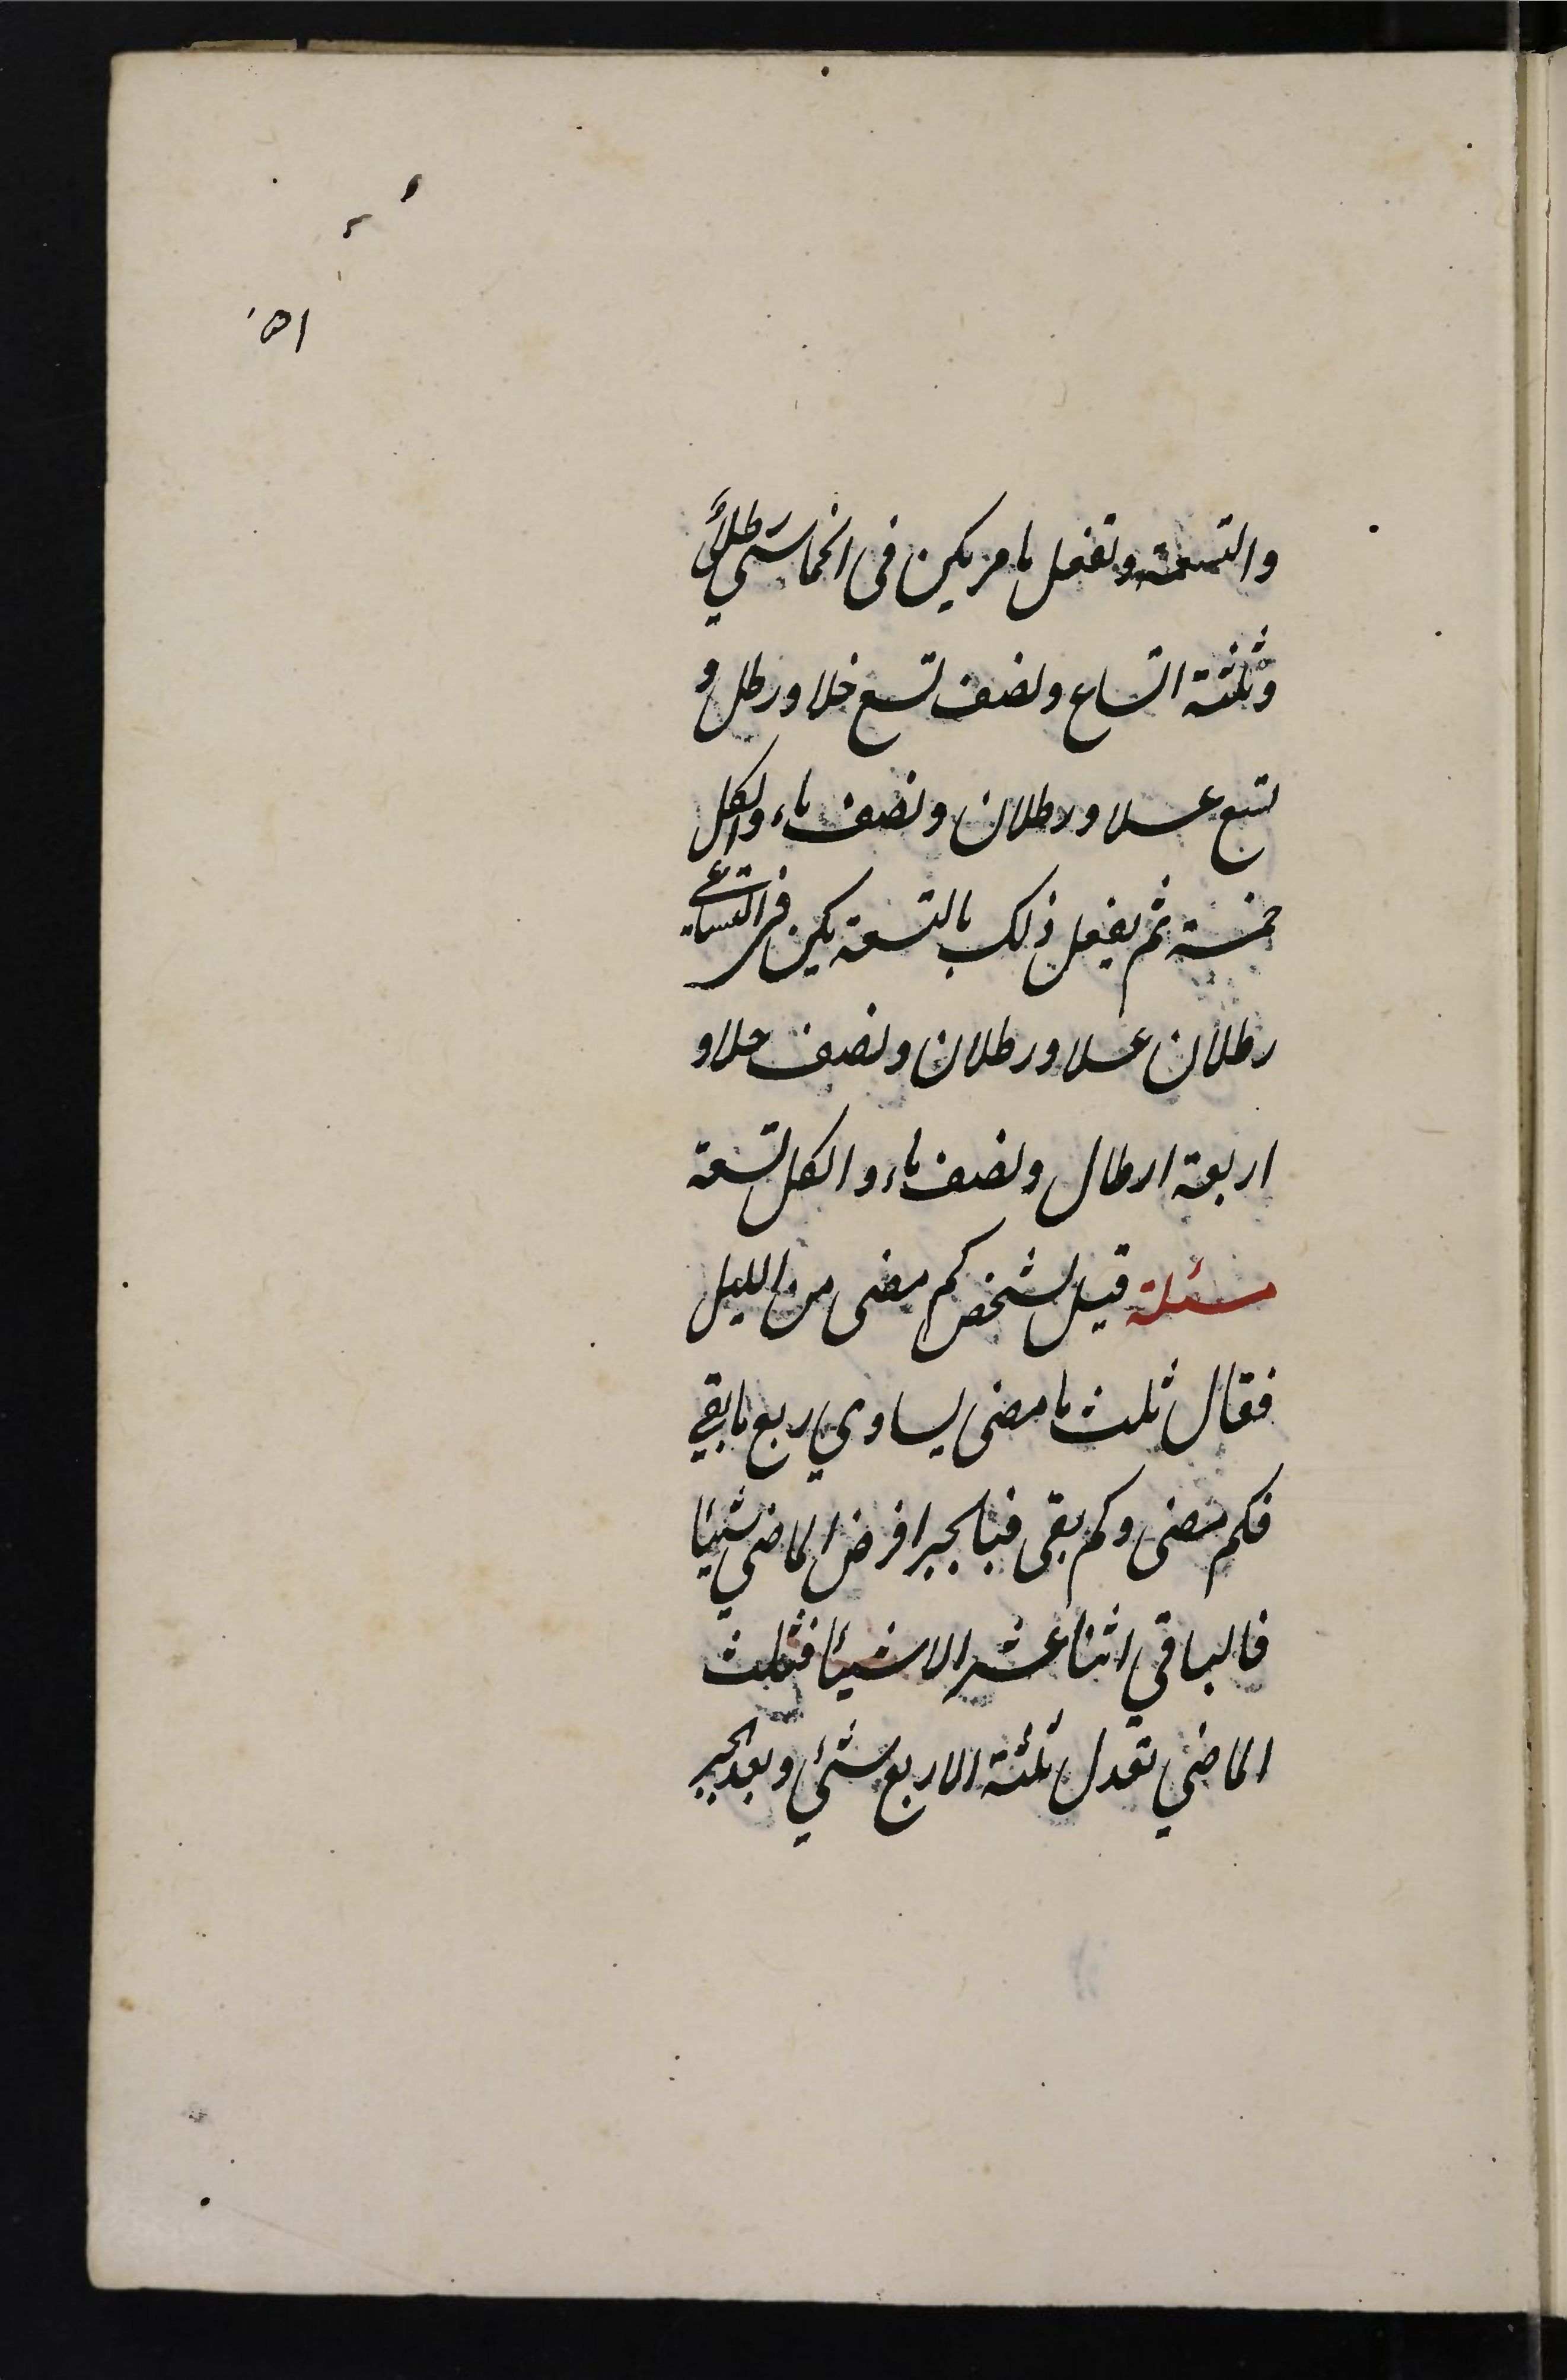 ٥١
والتسعة وتفعل ما مر يكن فى الخماسي رطلاً
وثلثة اتساع ونصف تسع خلا ورطل و
تسع عسلا ورطلان ونصف ماء والكل
خمسة ثم يفعل ذلك بالتسعة يكن فى التساعي
رطلان عسلا ورطلان ونصف خلا و
اربعة ارطال ونصف ماء والكل تسعة
مسئلة قيل لشخص كم مضى من الليل
فقال ثلث ما مضى يساوي ربع ما بقي
فكم مضى وكم بقى فبالجبر افرض الماضي شيئا
فالباقي اثنا عشر الا شيئا فثلث
الماضي تعدل ثلثة الا ربع شئي وبعد الجبر